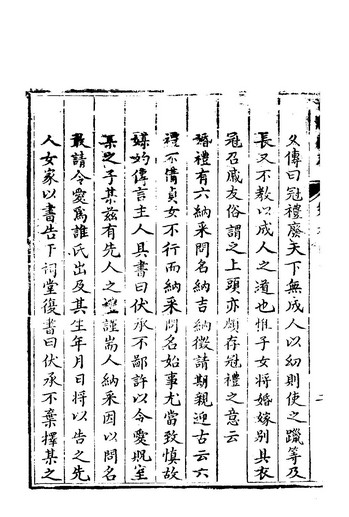 父傳曰冠禮廢天下無成人以幼則使之躐等及
長又不教以成人之道也惟子女將婚嫁別具衣
冠召戚友俗謂之上頭亦頗存冠禮之意云
婚禮有六納采問名納吉納徵請期親迎古云六
禮不備貞女不行而納采問名始事尤當致慎故
媒妁傳言主人具書曰伏承不鄙許以令愛貺室
某之子某茲有先人之禮謹耑人納采因以問名
敢請令愛為誰氏出及其生年月日將以告之先
人女家以書告下祠堂復書曰伏承不棄擇某之